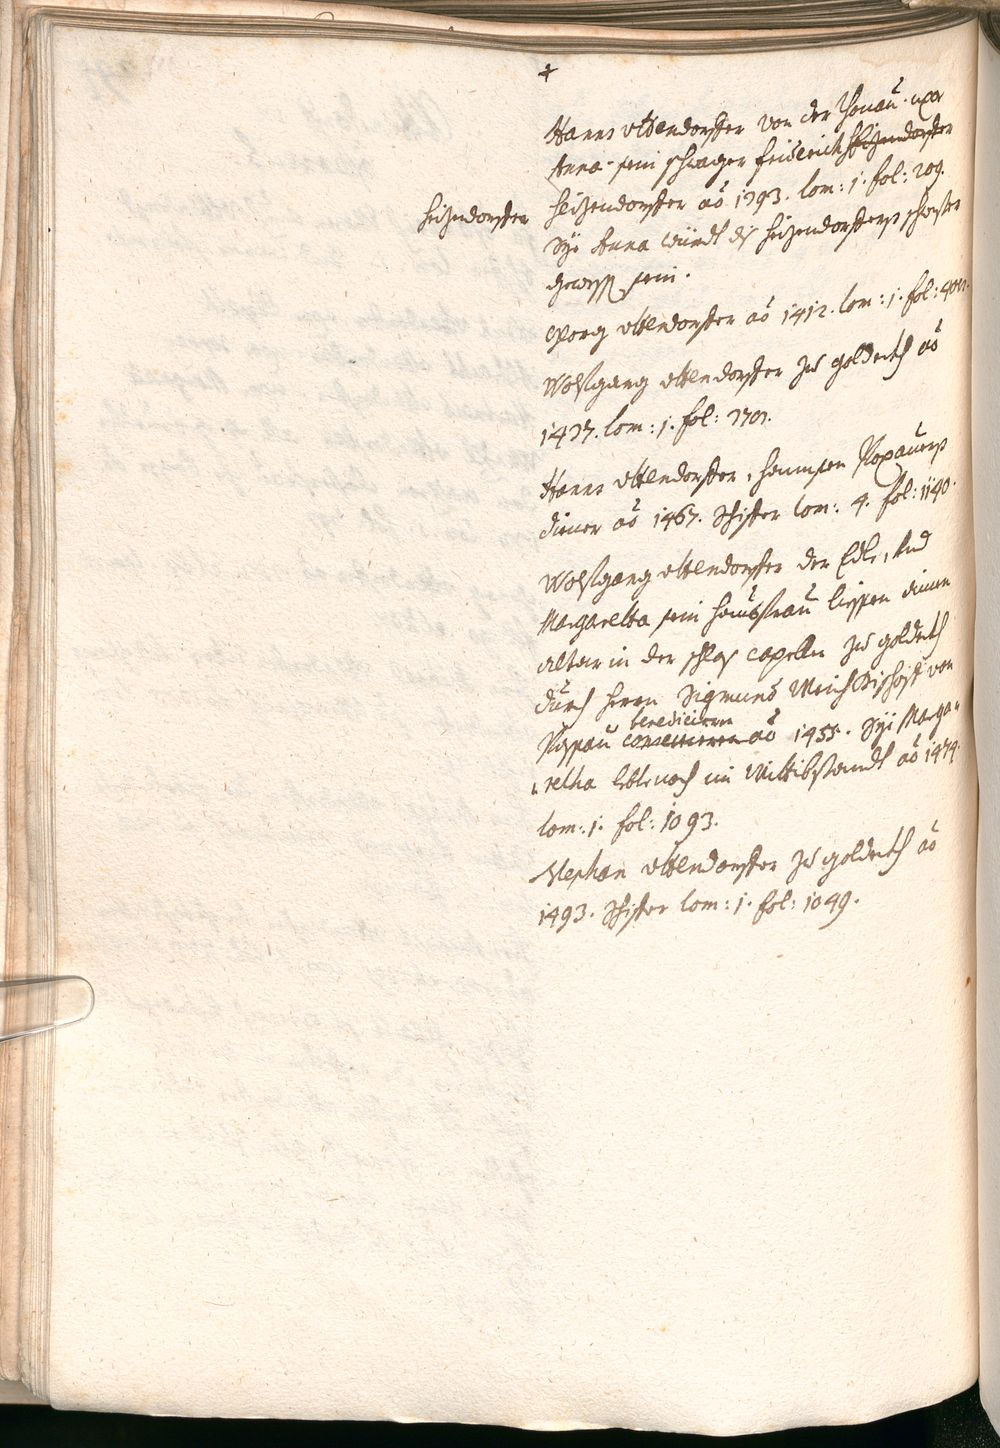 +
Hanns Ottendorffer von der Thonau. uxor
Anna. sein schwager Friderich
Heizendorffer
Heizendorffer ao 1393. tom: 1. fol: 209.
dise Anna würdt des Heizendorffers schwester
gewest sein.
Georg Ottendorffer ao 1412. tom: 1. fol:
Wolfgang Ottendorffer zu goldwerth ao
1437. tom: 1. fol: 3701.
Hanns Ottendorffer, Hannsen
diener ao 1467. Schifer tom: 4. fol: 1140.
Wolfgang Ottendorffer der Edle, und
Margaretta sein hausfrau liessen einen
altar in der schlos capellen zu goldwerth
durch herrn Sigmund Weich Bischoff von
benediciren
Passau consecrieren ao 1455. Die Marga-
retha lebt noch im Wittibstandt ao 1474.
tom: 1. fol: 1093.
Stephan Ottendorffer zu goldwerth ao
1493. Schifer tom: 1. fol: 1049.